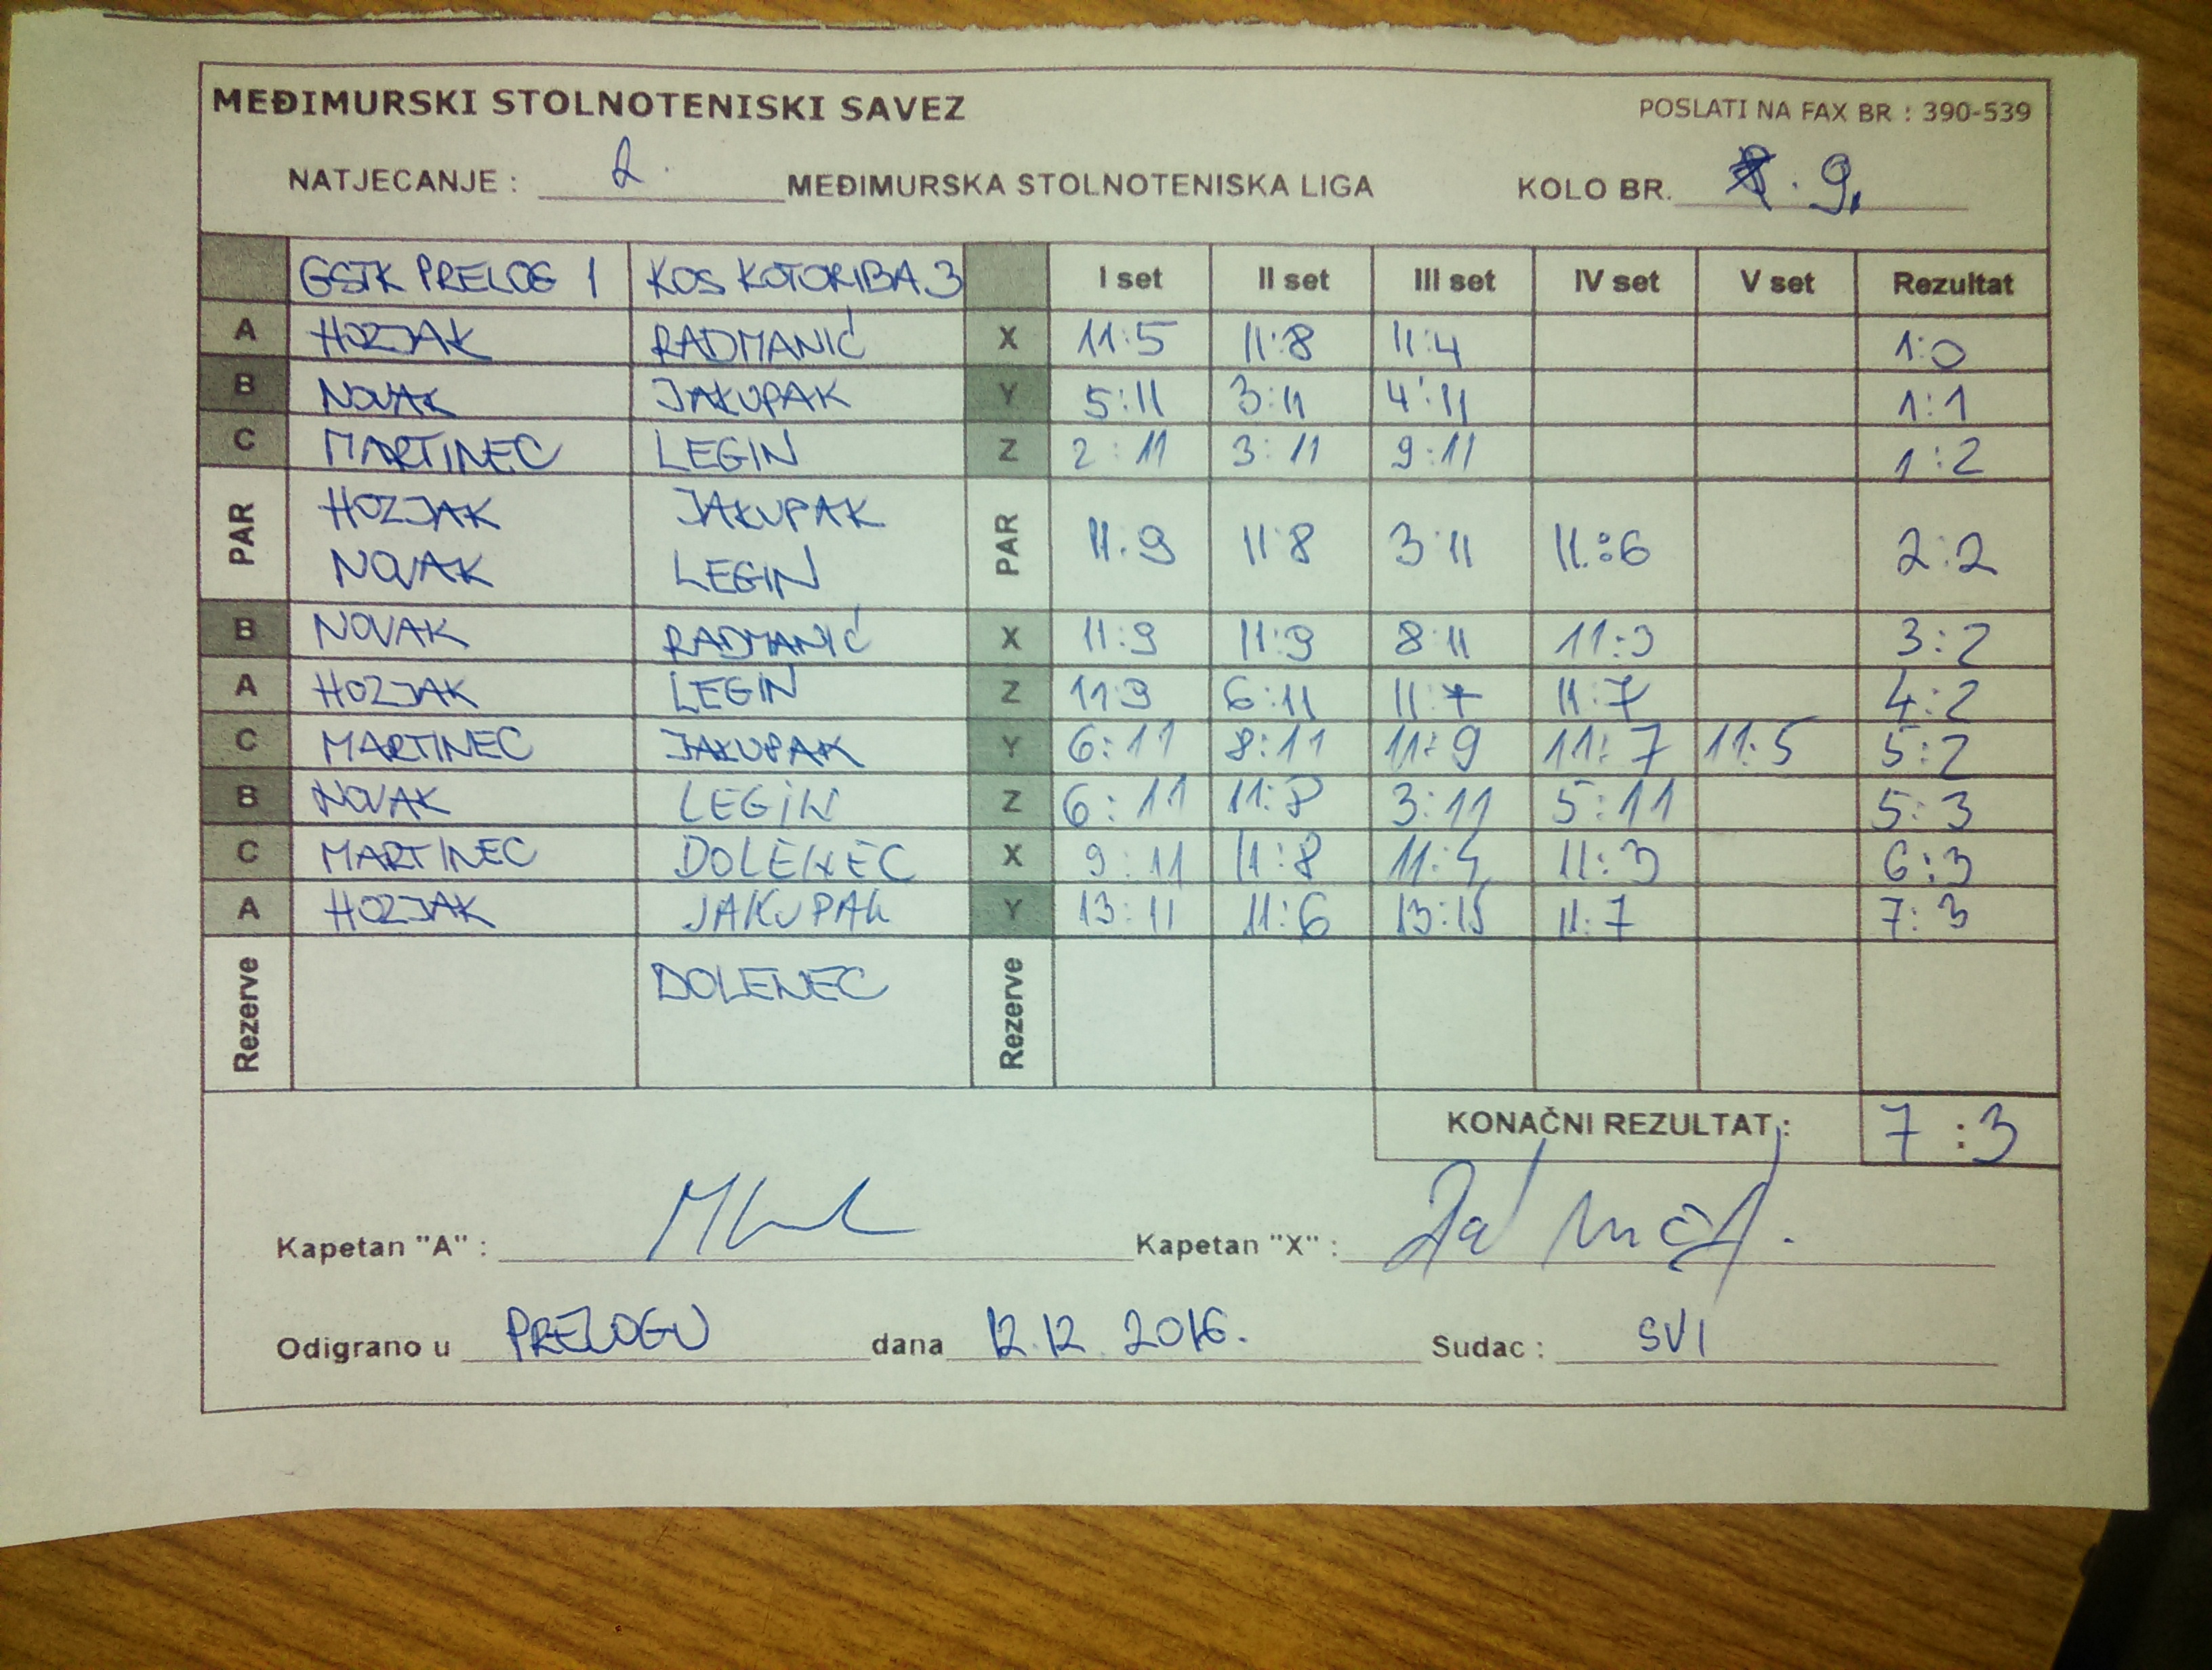 MEĐIMURSKI STOLNOTENISKI SAVEZ POSLATI NA FAX BR : 390-539
NATJECANJE : 2. MEĐIMURSKA STOLNOTENISKA LIGA KOLO BR. 9.
GSTK PRELOG 1 KOS KOTORIBA 3 I set II set III set IV set V set Rezultat
A HOZJAK RADMANIĆ X 11:5 11:8 11:4 1:0
B NOVAK JAKUPAK Y 5:11 3:11 4:11 1:1
C MARTINEC LEGIN Z 2:11 3:11 9:11 1:2
PAR HOZJAK JAKUPAK PAR 11.9 11:8 3:11 11:6 2:2
NOVAK LEGIN
B NOVAK RADMANIĆ X 11:9 11:9 8:11 11:9 3:2
A HOZJAK LEGIN Z 11:9 6:11 11:7 11:7 4:2
C MARTINEC JAKUPAK Y 6:11 8:11 11:9 11:7 11:5 5:2
B NOVAK LEGIN Z 6:11 11:8 3:11 5:11 5:3
C MARTINEC DOLENEC X 9:11 11:8 11:5 11:3 6:3
A HOZJAK JAKUPAK Y 13:11 11:6 13:15 11:7 7:3
Rezerve DOLENEC Rezerve
KONAČNI REZULTAT : 7:3
Kapetan "A" : Kapetan "X" :
Odigrano u PRELOGU dana 12.12.2016. Sudac : SVI